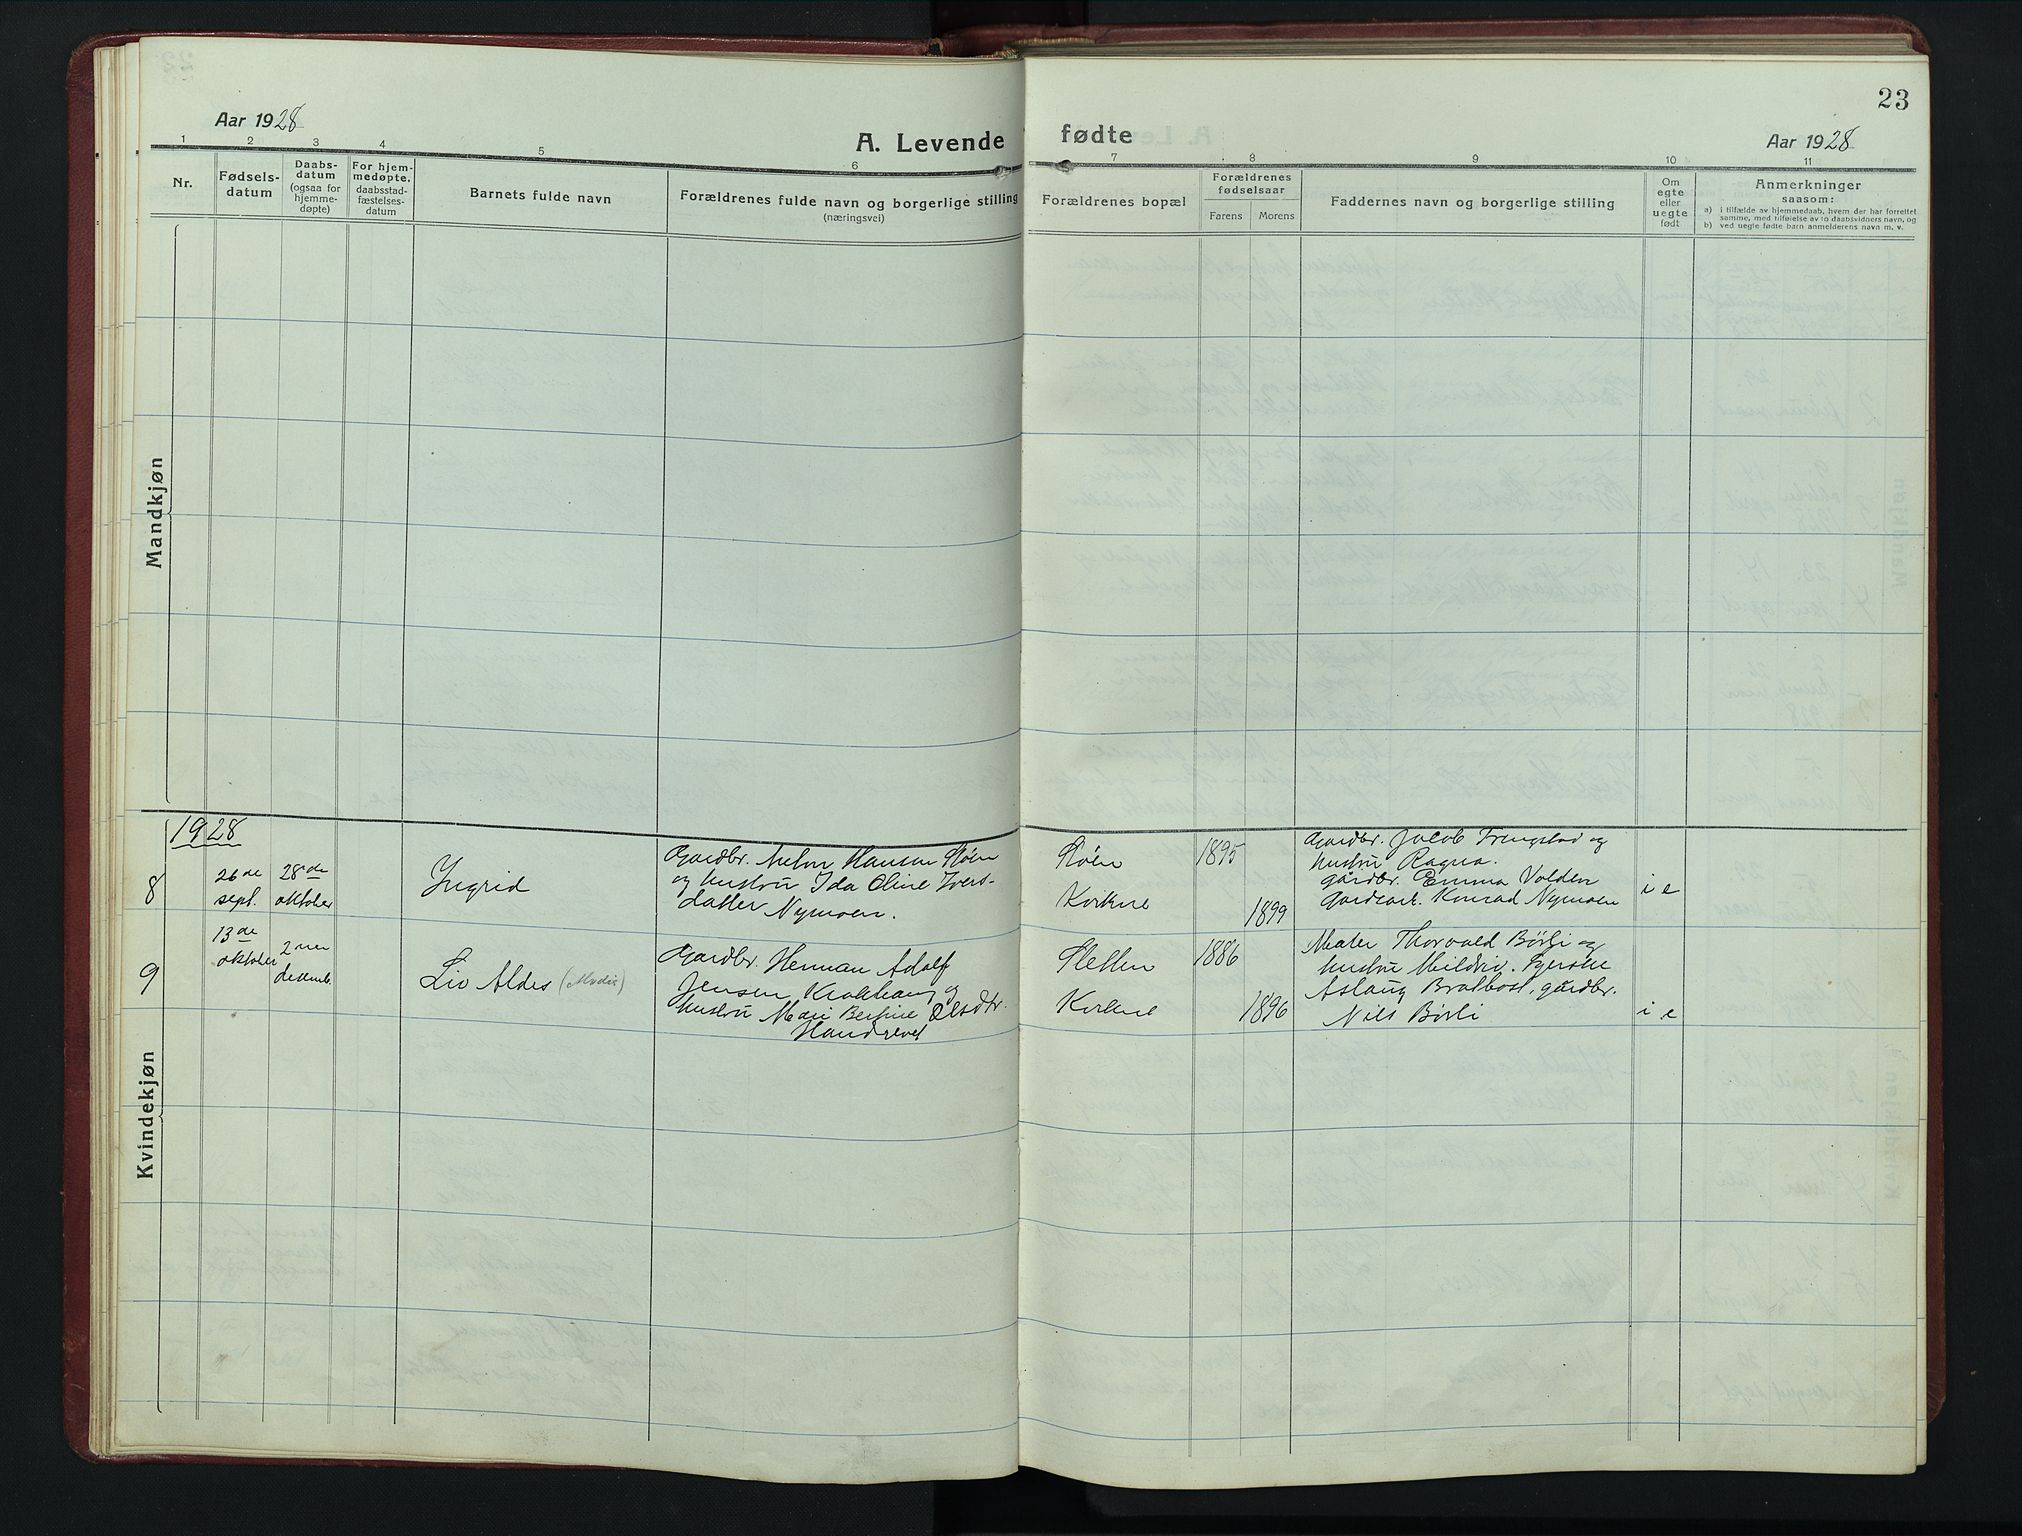 23
Aar 1928
A. Levende fødte
Aar 1928
1 2 3 4 5 6 7 8 9 10 11
Nr.
Fødsels-
datum
Daabs-
datum
(ogsaa for
hjemme-
døpte)
For hjem-
medøpte.
daabsstad-
fæstelses-
datum
Barnets fulde navn
Forældrenes fulde navn og borgerlige stilling
(næringsvei)
Forældrenes bopæl
Forældrenes
fødselsaar
Farens Morens
Faddernes navn og borgerlige stilling
Om
egte
eller
uegte
født
Anmerkninger
saasom:
a) i tilfælde av hjemmedaab, hvem der har forrettet
samme, med tilføielse av to daabsvidners navn, og
b) ved uegte fødte barn anmelderens navn m. v.
Mandkjøn
Kvindekjøn
1928
8
26de
sept.
28de
oktober
Ingrid
Gardbr. Hansen Støen
og hustru Ida Oline Ivers-
datter Nymoen.
Støen
Kvikne
1895
1899
Gardbr. Jacob Frengstad og
hustru Ragna.
gårdbr. Emma Volden
Gardearb. Konrad Nymoen
i e
9
13de
oktober
2nen
desemb.
Liv Aldis (Alvdis)
Gardbr. Herman Adolf
Jensen og
hustru Mari Bertine Olsdtr.
Sletten
Kvikne
1886
1896
Maler Thorvald Børli og
hustru Mildrid.
Aslaug Bratbost, gårdbr.
Nils Børli
i e